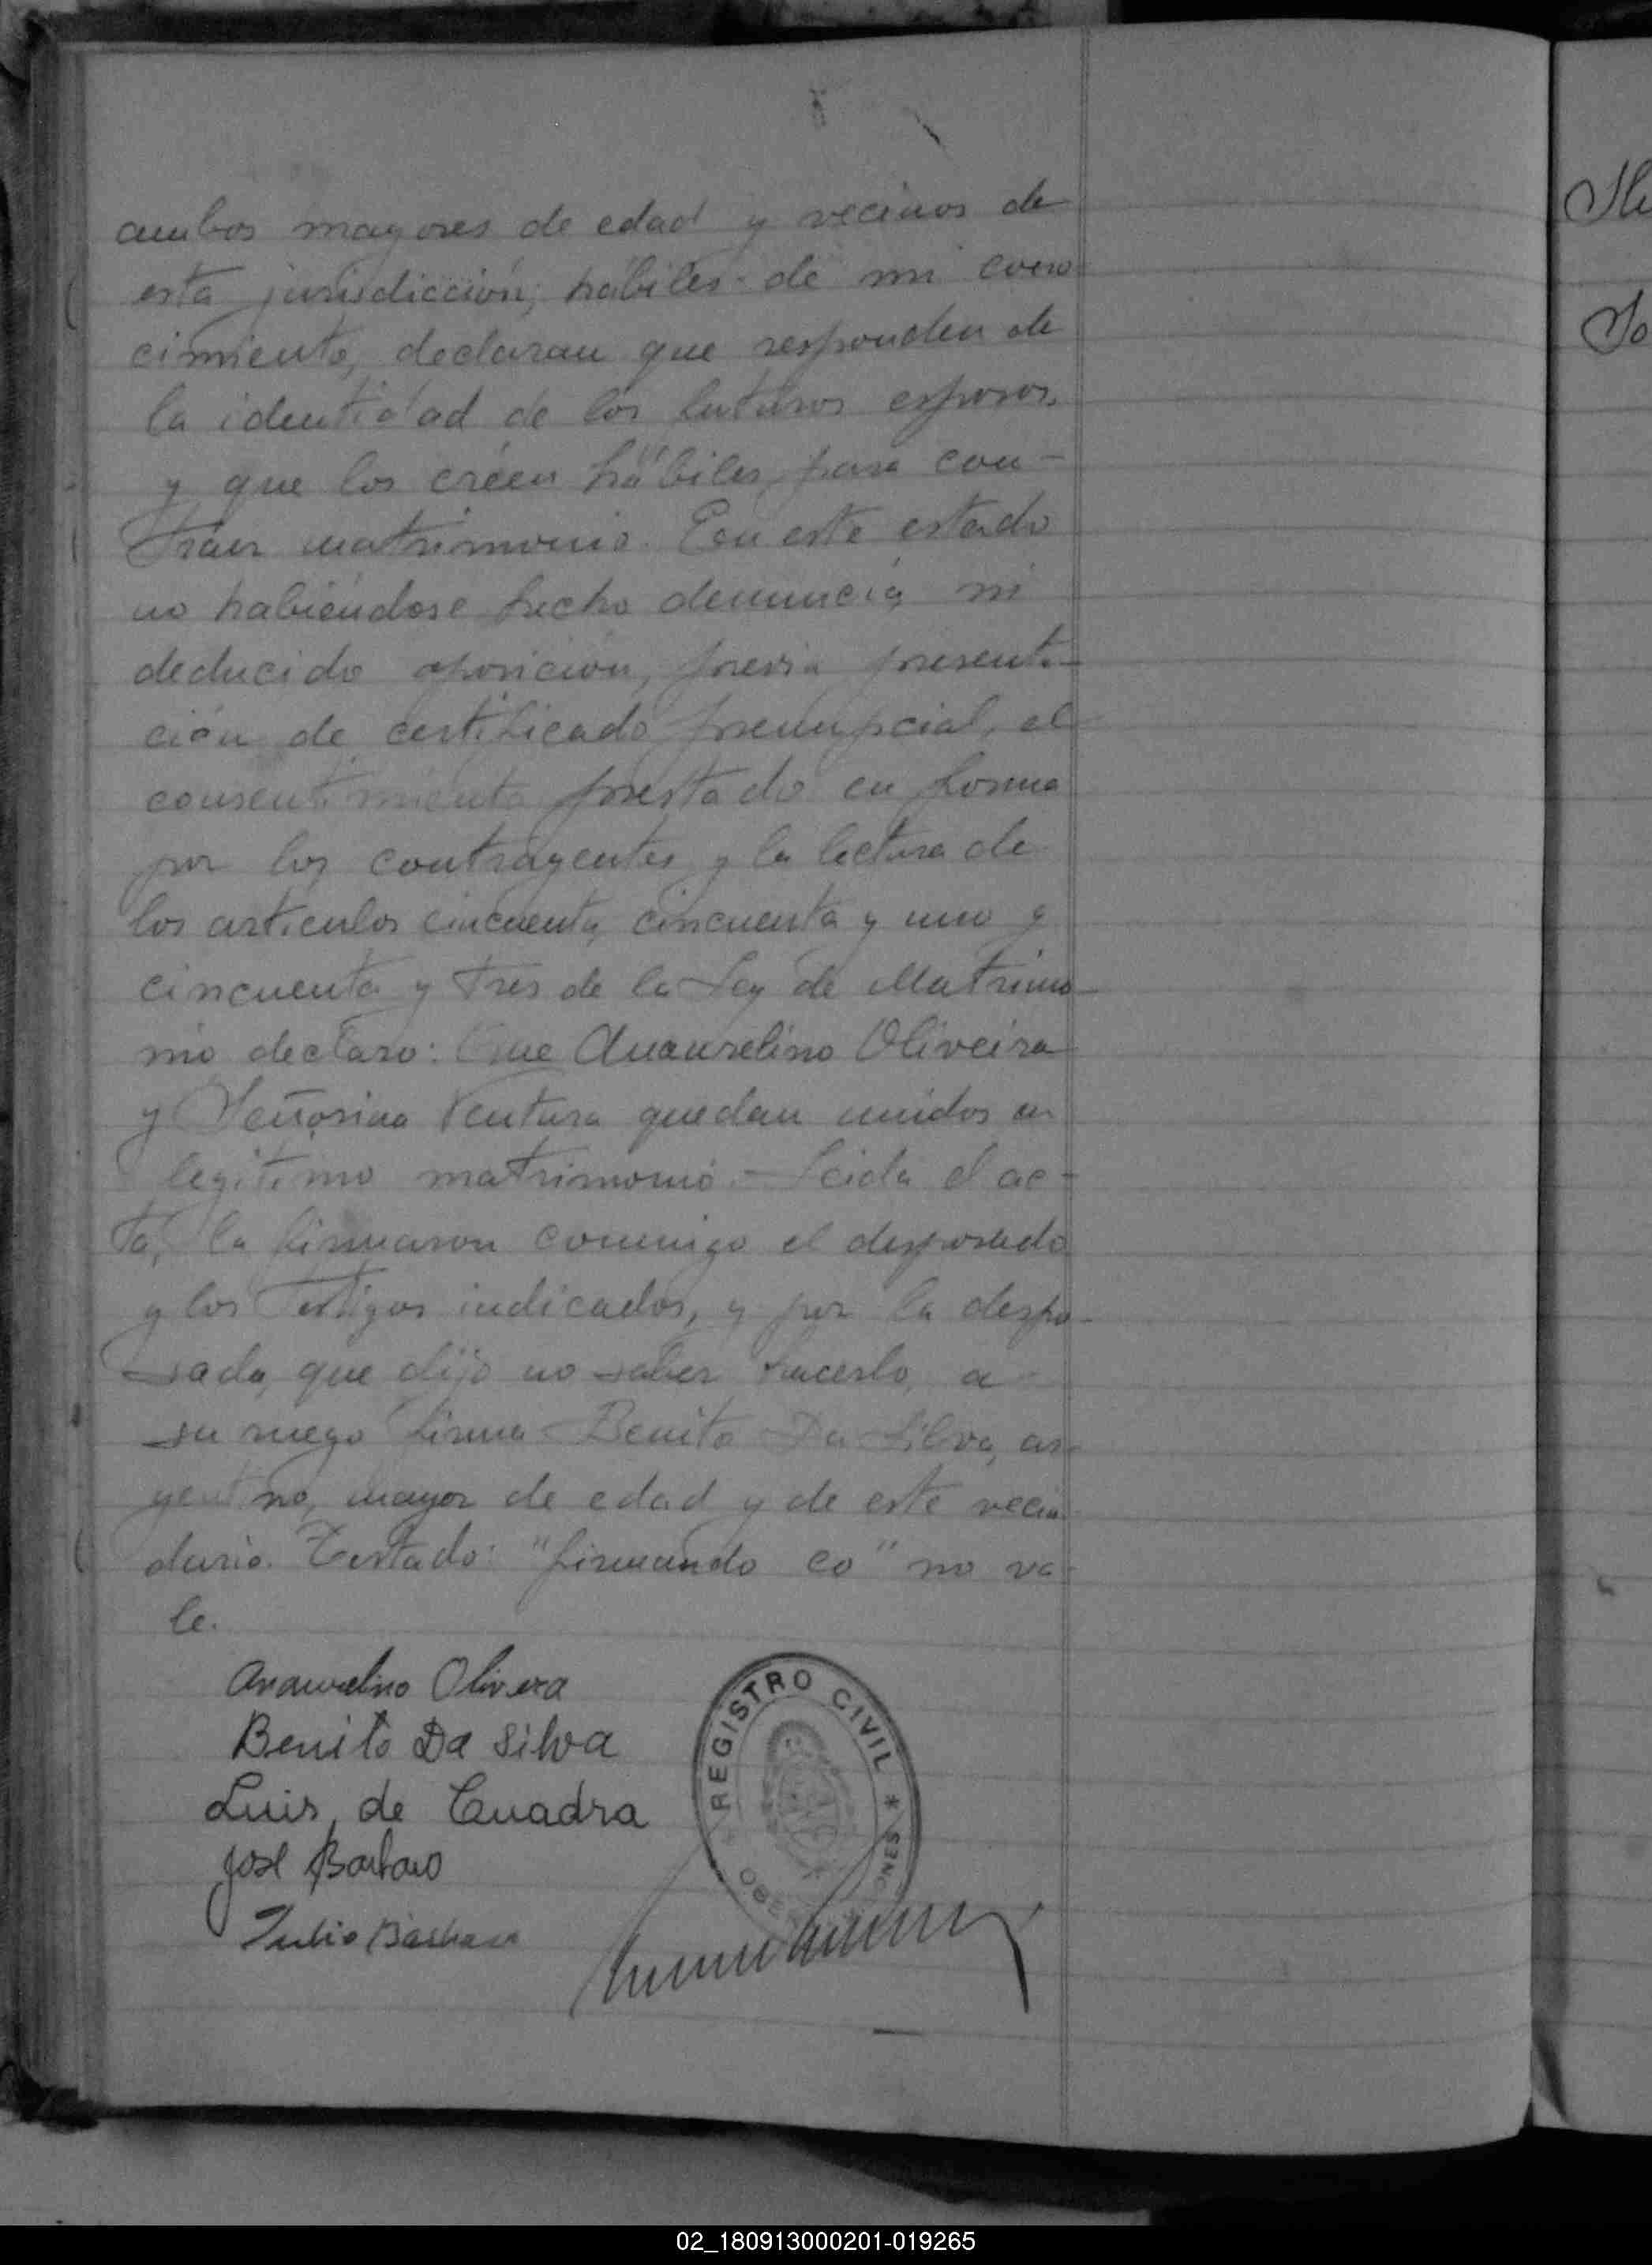 ambos mayores de edad y vecinos de
esta jurisdicción, hábiles de mi cono
cimiento, declaran que responden de
la identidad de los futuros esposos,
y que los créen hábiles para con-
traer matrimonio. En este estado
no habiéndose hecho denuncia, ni
deducido oposición, previa presenta-
ción de certificado prenupcial, el
consentimiento prestado en forma
por los contrayentes y la lectura de
los artículos cincuenta, cincuenta y uno y
cincuenta y tres de la Ley de Matrimo-
nio declaro: Que Anaurelino Oliveira
y Señorina Ventura quedan unidos en
legítimo matrimonio.- Leida el ac-
ta, la firmaron conmigo el desposado
y los testigos indicados, y por la despo-
sada, que dijo no saber hacerlo, a
su ruego firma Benito Da Silva, ar-
gentino, mayor de edad y de este vecin
dario. Testado: "firmando co" no va-
le.
Anaurelino Olivera
Benito Da Silva
Luis de Cuadra
José Barbaro
Julio
REGISTRO CIVIL
* *
02_180913000201-019265